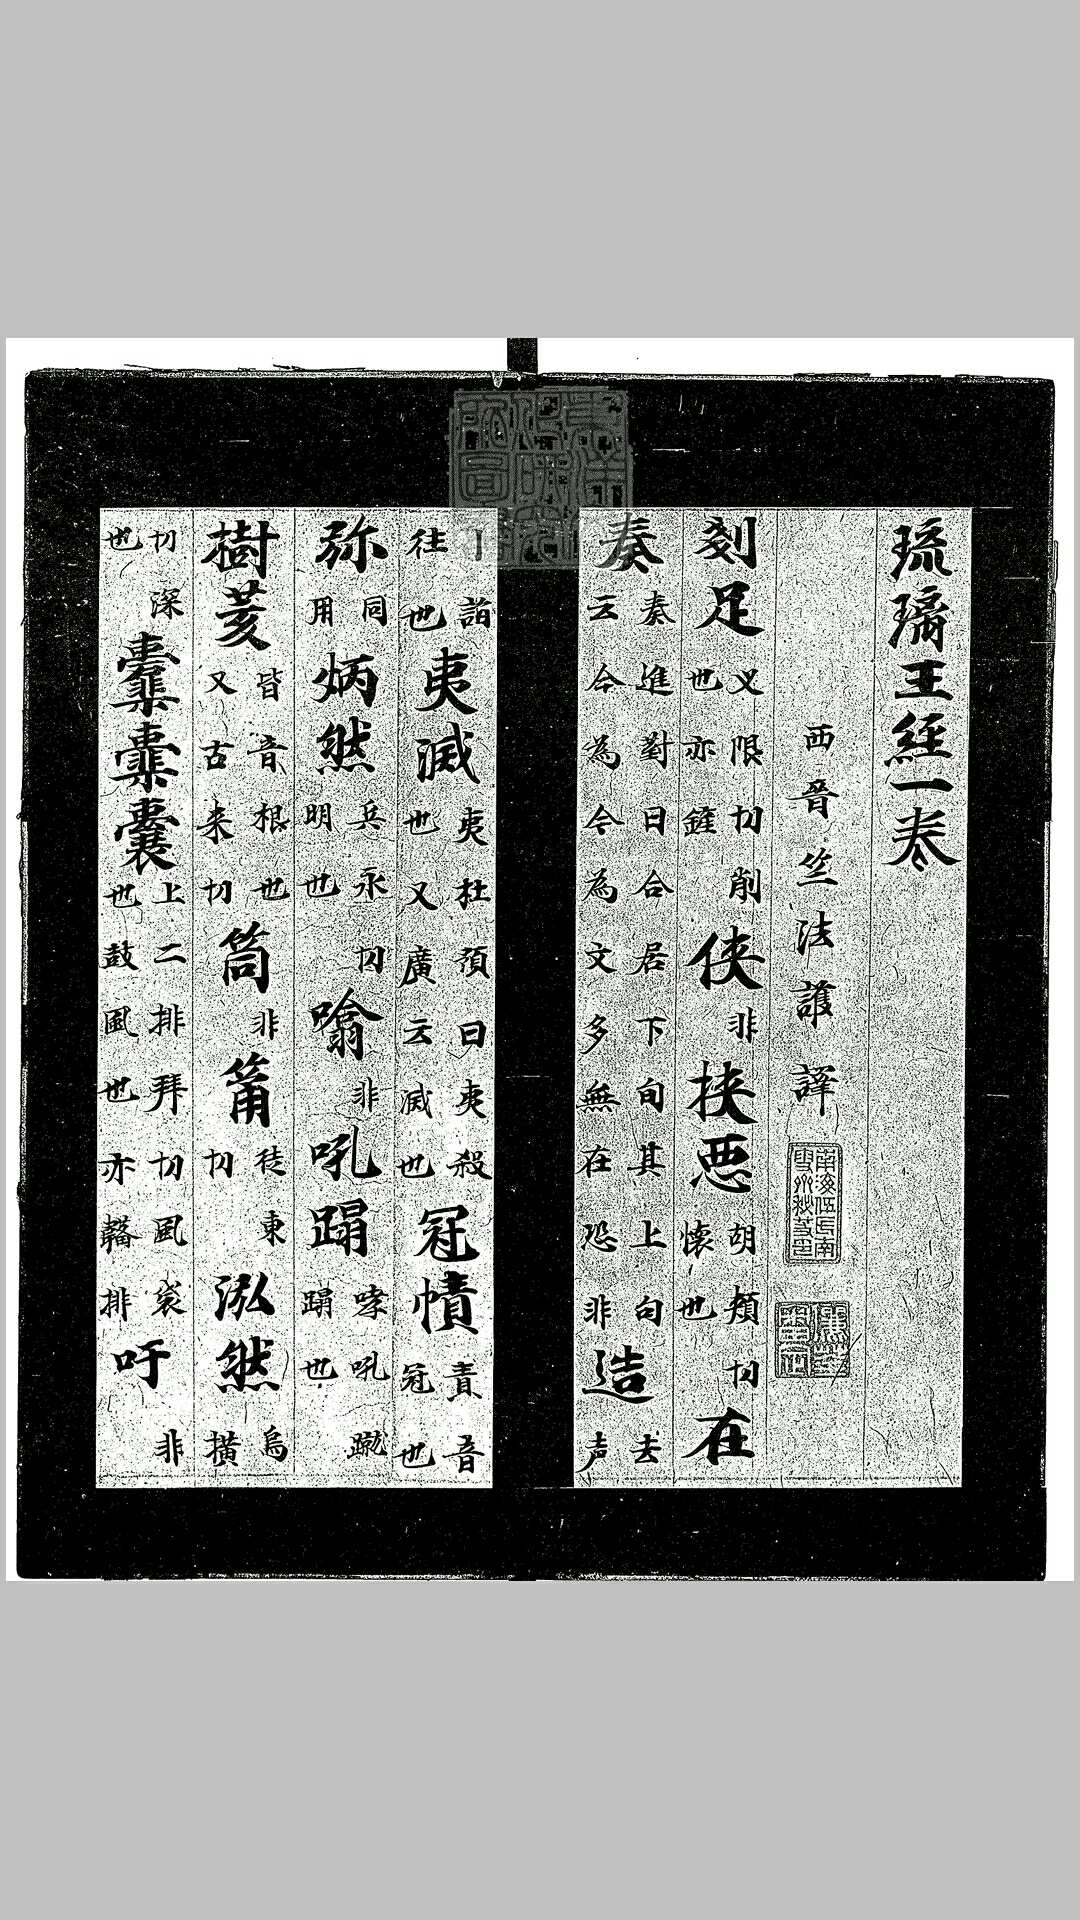 琉璃王經一卷
西晉竺法護譯
剗足 乂限切削也亦鏟 俠 非 挾惡 胡頰切懷也 在
奏 奏進對曰合居下句其上句云今為令為文多無在恐非 造 去声
詣往也 夷滅 夷杜預曰夷殺也又廣云滅也 冠幘 責音冠也
弥 同用 炳然 兵永切明也 噏 非 吼蹋 哮吼蹴蹋也
樹荄 皆音根也又古来切 筒 非 筩 徒東切 泓然 烏橫
切深也 橐囊 上二排拜切風袋也鼓風也亦韛排 吁 非